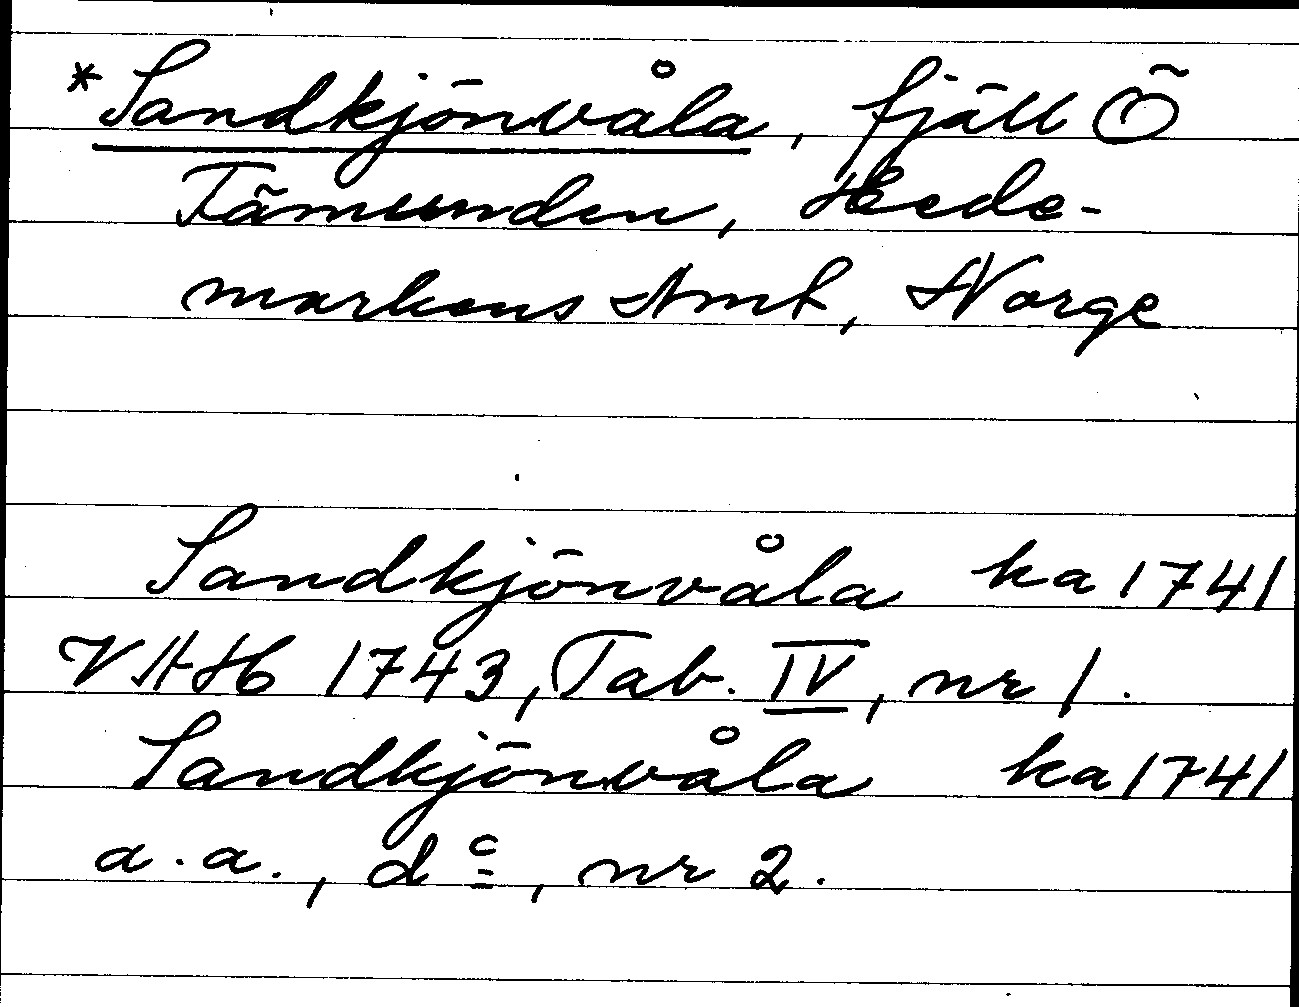 *Sandkjönvåla, fjäll Ö
Fämunden, Hede-
markens Amt, Norge
Sandkjönvåla ka 1741
VAH 1743, Tab. IV, nr 1.
Sandkjönvåla ka 1741
a.a., dº, nr 2.